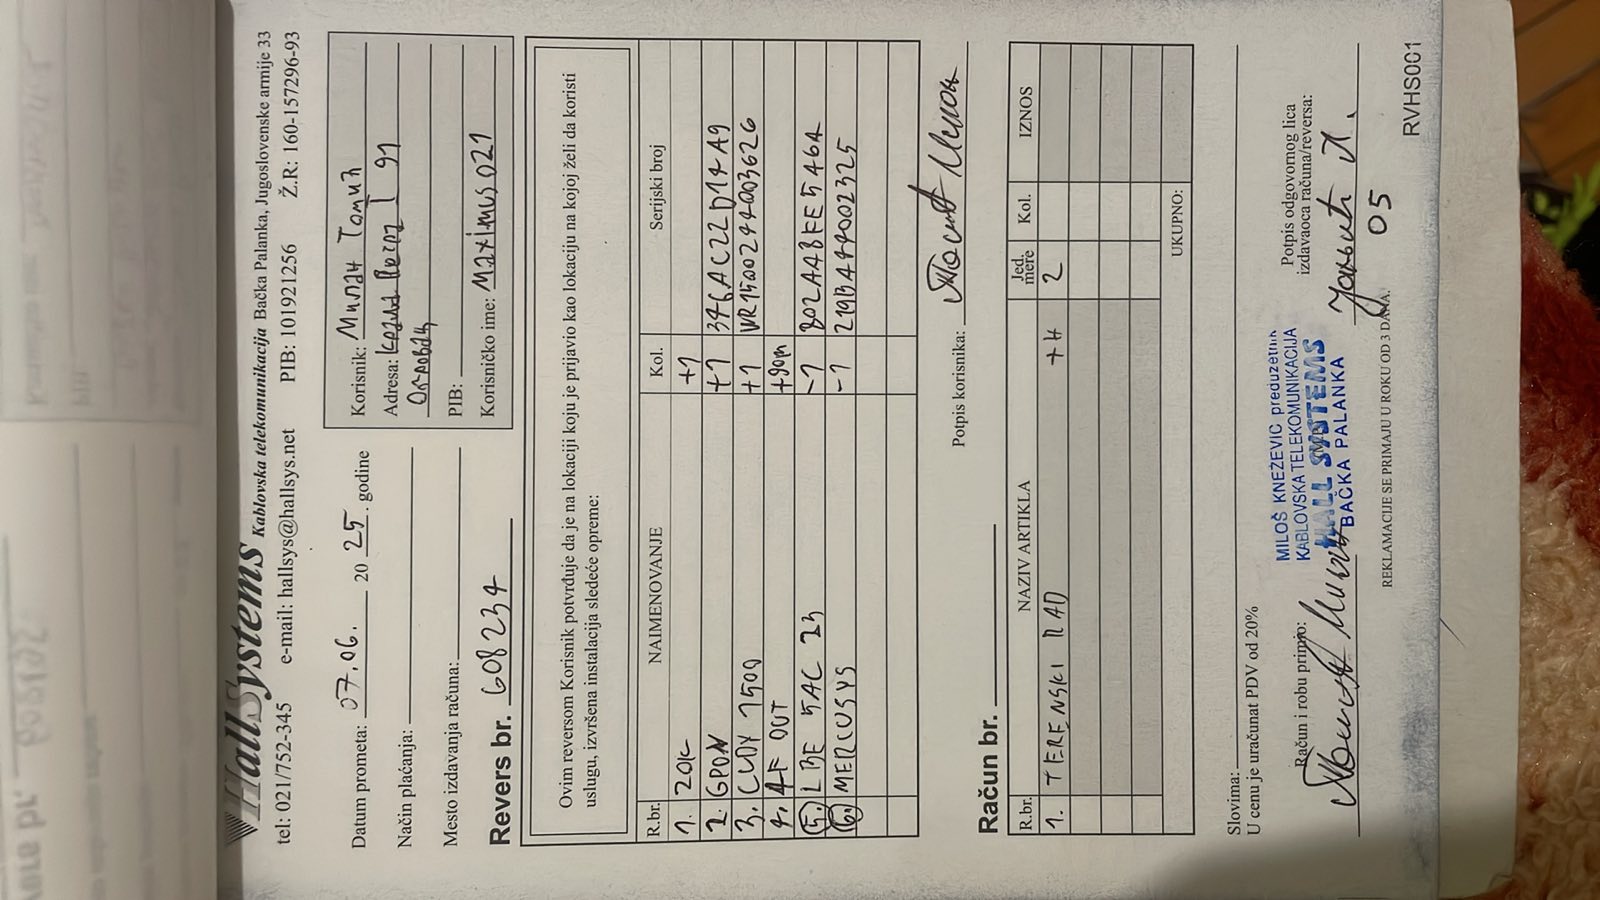 HallSystems Kablovska telekomunikacija Bačka Palanka, Jugoslovenske armije 33
tel: 021/752-345 e-mail: hallsys@hallsys.net PIB: 101921256 Ž.R: 160-157296-93
Datum prometa: 07.06. 20 25. godine
Način plaćanja:
Mesto izdavanja računa:
Korisnik: Милан Томић
Adresa: 91
PIB:
Korisničko ime: Maximus021
Revers br. 608234
Ovim reversom Korisnik potvrđuje da je na lokaciji koju je prijavio kao lokaciju na kojoj želi da koristi
uslugu, izvršena instalacija sledeće opreme:
R.br. NAIMENOVANJE Kol. Serijski broj
1. ZOK +1
2. GPON +1
3. CUDY 1500 +1 WR1500247003626
4. 4F OUT +90m
5. LBE 5AC 23 -1 802AA8FE5464
6. MERCUSYS -1 219B444002325
Potpis korisnika:
Račun br.
R.br. NAZIV ARTIKLA Jed. mere Kol. IZNOS
1. TERENSKI RAD +H 2
UKUPNO:
Slovima:
U cenu je uračunat PDV od 20%
Račun i robu primio:
MILOŠ KNEŽEVIĆ preduzetnik
KABLOVSKA TELEKOMUNIKACIJA
HALL SYSTEMS
BAČKA PALANKA
Potpis odgovornog lica
izdavaoca računa/reversa:
05
REKLAMACIJE SE PRIMAJU U ROKU OD 3 DANA.
RVHS001